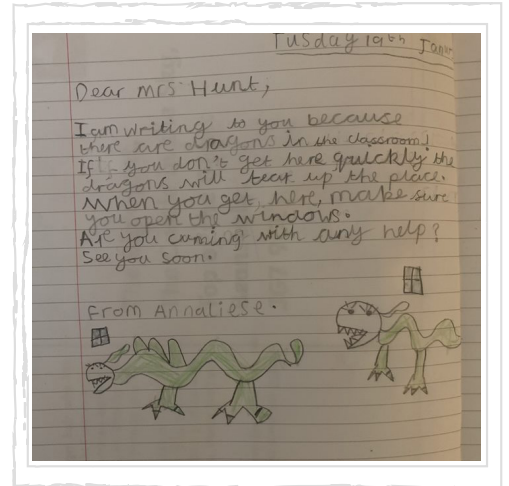 Tusday 19th Janu
Dear Mrs Hunt,
I am writing to you because
there are dragons in the classroom!
If you don't get here quickly the
dragons will tear up the place.
When you get here, make sure
you open the windows.
Are you cuming with any help?
See you soon.
From Annaliese.